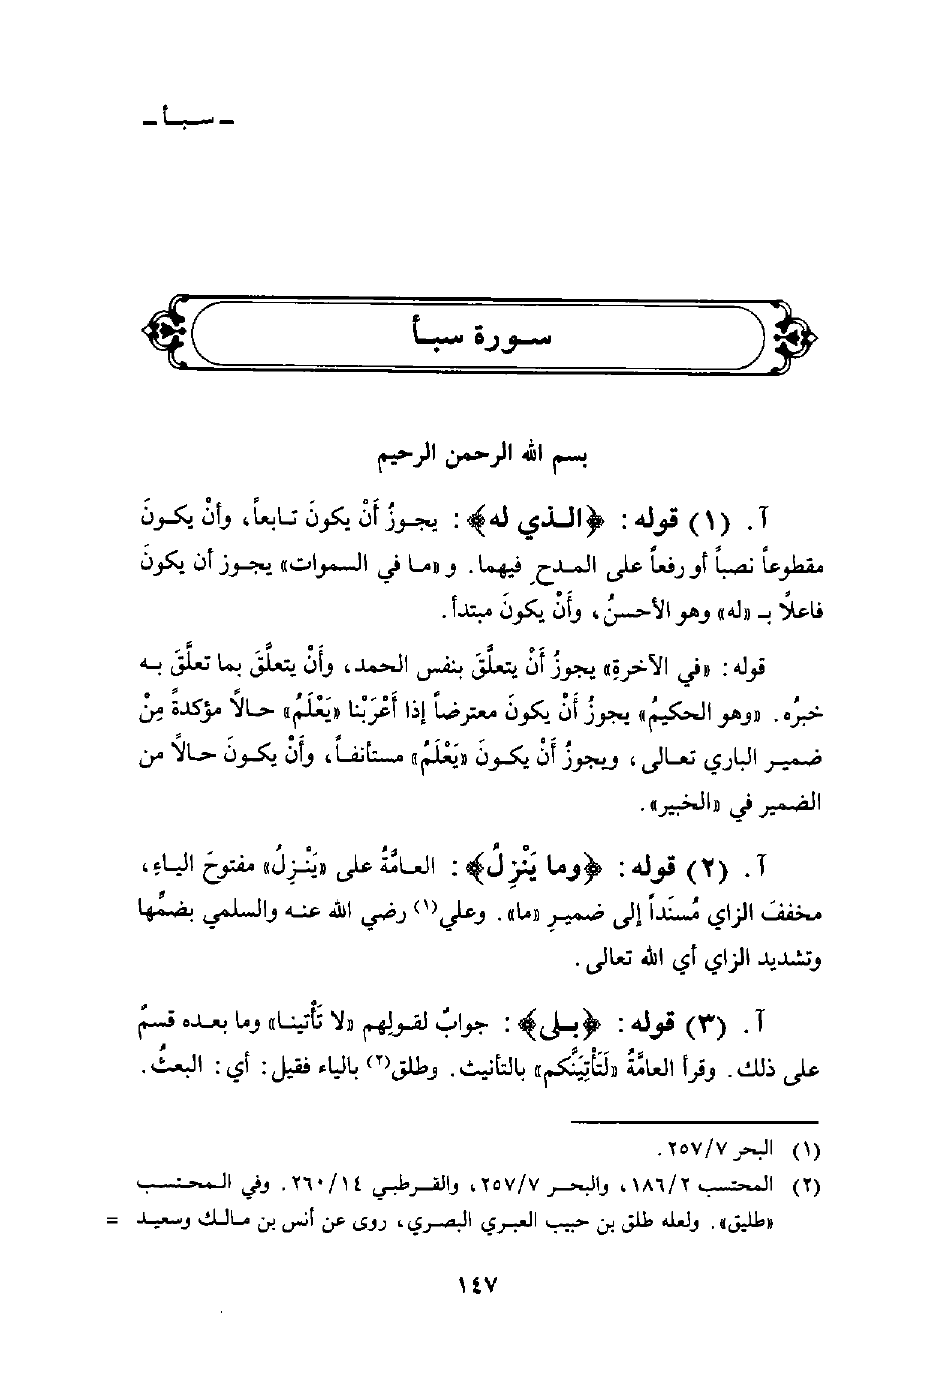 ـ سـبـأ ـ
سـورة سبـأ
بسم الله الرحمن الرحيم
آ. (١) قوله: ﴿الـذي له﴾: يجـوزُ أَنْ يكونَ تـابعاً، وأنْ يكـونَ
مقطوعاً نصباً أو رفعاً على المـدحِ فيهما. و «مـا في السموات» يجـوز أن يكونَ
فاعلاً بـ «له» وهو الأحسنُ، وأَنْ يكونَ مبتدأ.
قوله: «في الآخرةِ» يجوزُ أَنْ يتعلَّقَ بنفس الحمد، وأَنْ يتعلَّقَ بما تعلَّقَ بـه
خبرُه. «وهو الحكيمُ» يجوزُ أَنْ يكونَ معترضاً إذا أَعْرَبْنا «يَعْلَمُ» حـالاً مؤكدةً مِنْ
ضميـر الباري تعـالى، ويجوزُ أَنْ يكـونَ «يَعْلَمُ» مستأنفـاً، وأَنْ يكـونَ حـالاً من
الضمير في «الخبير».
آ. (٢) قوله: ﴿وما يَنْزِلُ﴾: العـامَّةُ على «يَنْـزِلُ» مفتوحَ اليـاءِ،
مخففَ الزاي مُسْنَداً إلى ضميرِ «ما». وعلي(١) رضي الله عنـه والسلمي بضمِّها
وتشديد الزاي أي الله تعالى.
آ. (٣) قوله: ﴿بـلى﴾: جوابٌ لقـولِهم «لا تَأْتينـا» وما بعـده قسمٌ
على ذلك. وقرأ العامَّةُ «لَتَأْتِيَنَّكم» بالتأنيث. وطلق(٢) بالياء فقيل: أي: البعثُ.
(١) البحر ٢٥٧/٧.
(٢) المحتسب ١٨٦/٢، والبحـر ٢٥٧/٧، والقـرطبي ٢٦٠/١٤. وفي المحتسب
«طليق». ولعله طلق بن حبيب العبري البصري، روى عن أنس بن مالك وسعيد =
١٤٧